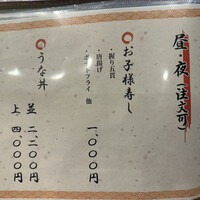 昼・夜(注文可)
お子様寿し
・握り五貫
・唐揚げ
・ポテトフライ 他
一、〇〇〇円
うな丼
並 二、二〇〇円
上 四、〇〇〇円